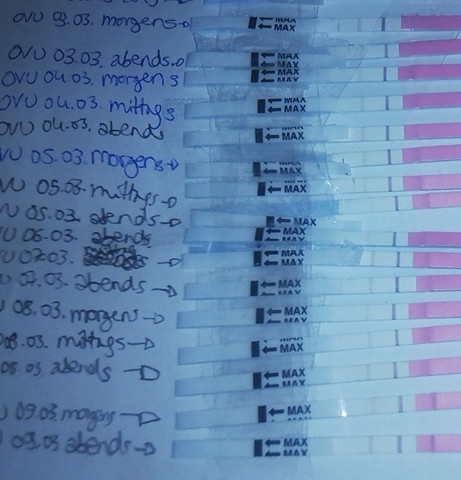 OVU 03.03. morgens
MAX
MAX
OVU 03.03. abends.
MAX
MAX
OVU 04.03. morgens
MAX
MAX
OVU 04.03. mittags
MAX
MAX
OVU 04.03. abends
MAX
VU 05.03. morgens
MAX
MAX
VU 05.03. mittags
MAX
U 05.03. abends
MAX
U 06.03. abends
MAX
MAX
U 07.03.
MAX
MAX
U 07.03. abends
MAX
MAX
U 08.03. morgens
MAX
MAX
08.03. mittags
MAX
MAX
08.03. abends
MAX
MAX
U 09.03. morgens
MAX
MAX
09.03 abends
MAX
MAX